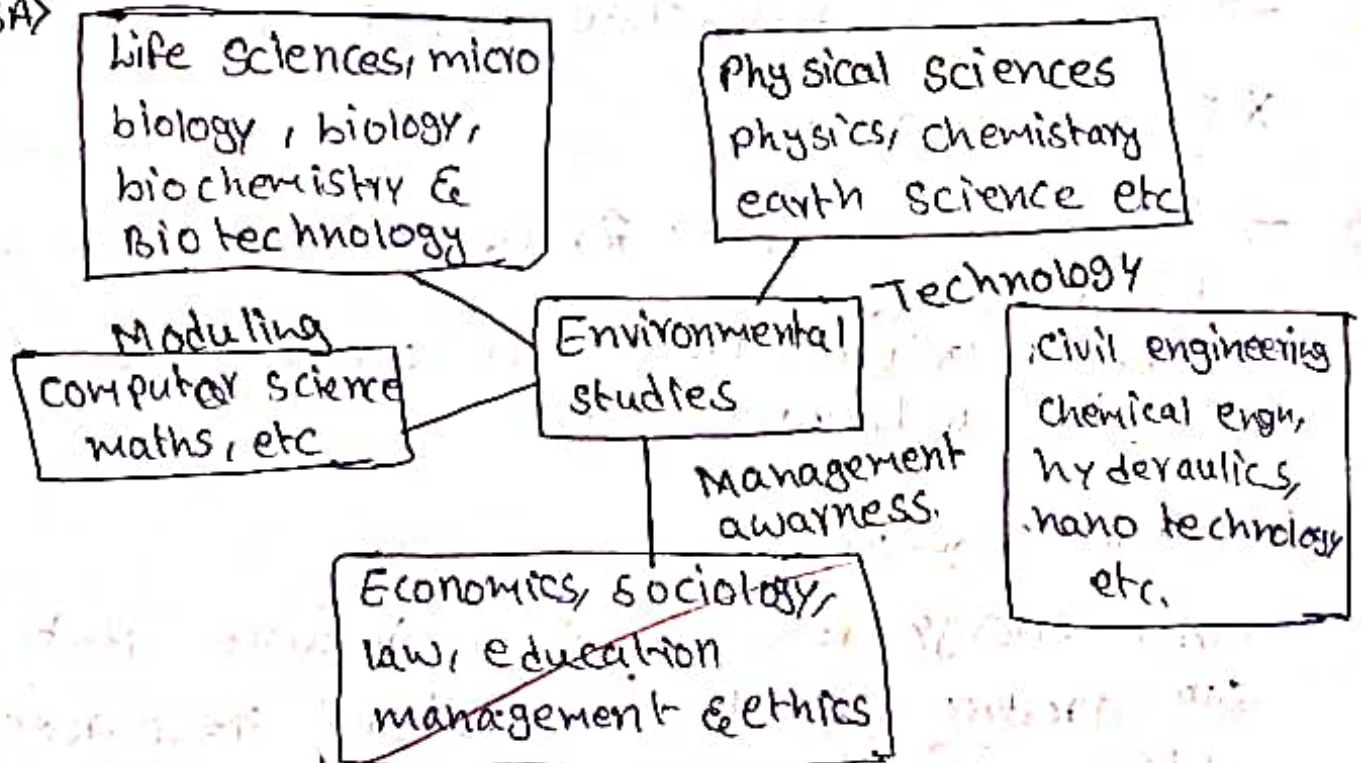 5A>
Life Sciences, micro
biology, biology,
biochemistry &
Biotechnology.
Physical sciences
physics, chemistary
earth science etc
Moduling
computer science
maths, etc
Environmental
studies
Technology
Civil engineering
chemical engn,
hyderaulics,
nano technology
etc.
Management
awarness.
Economics, sociology,
law, education
management & ethics